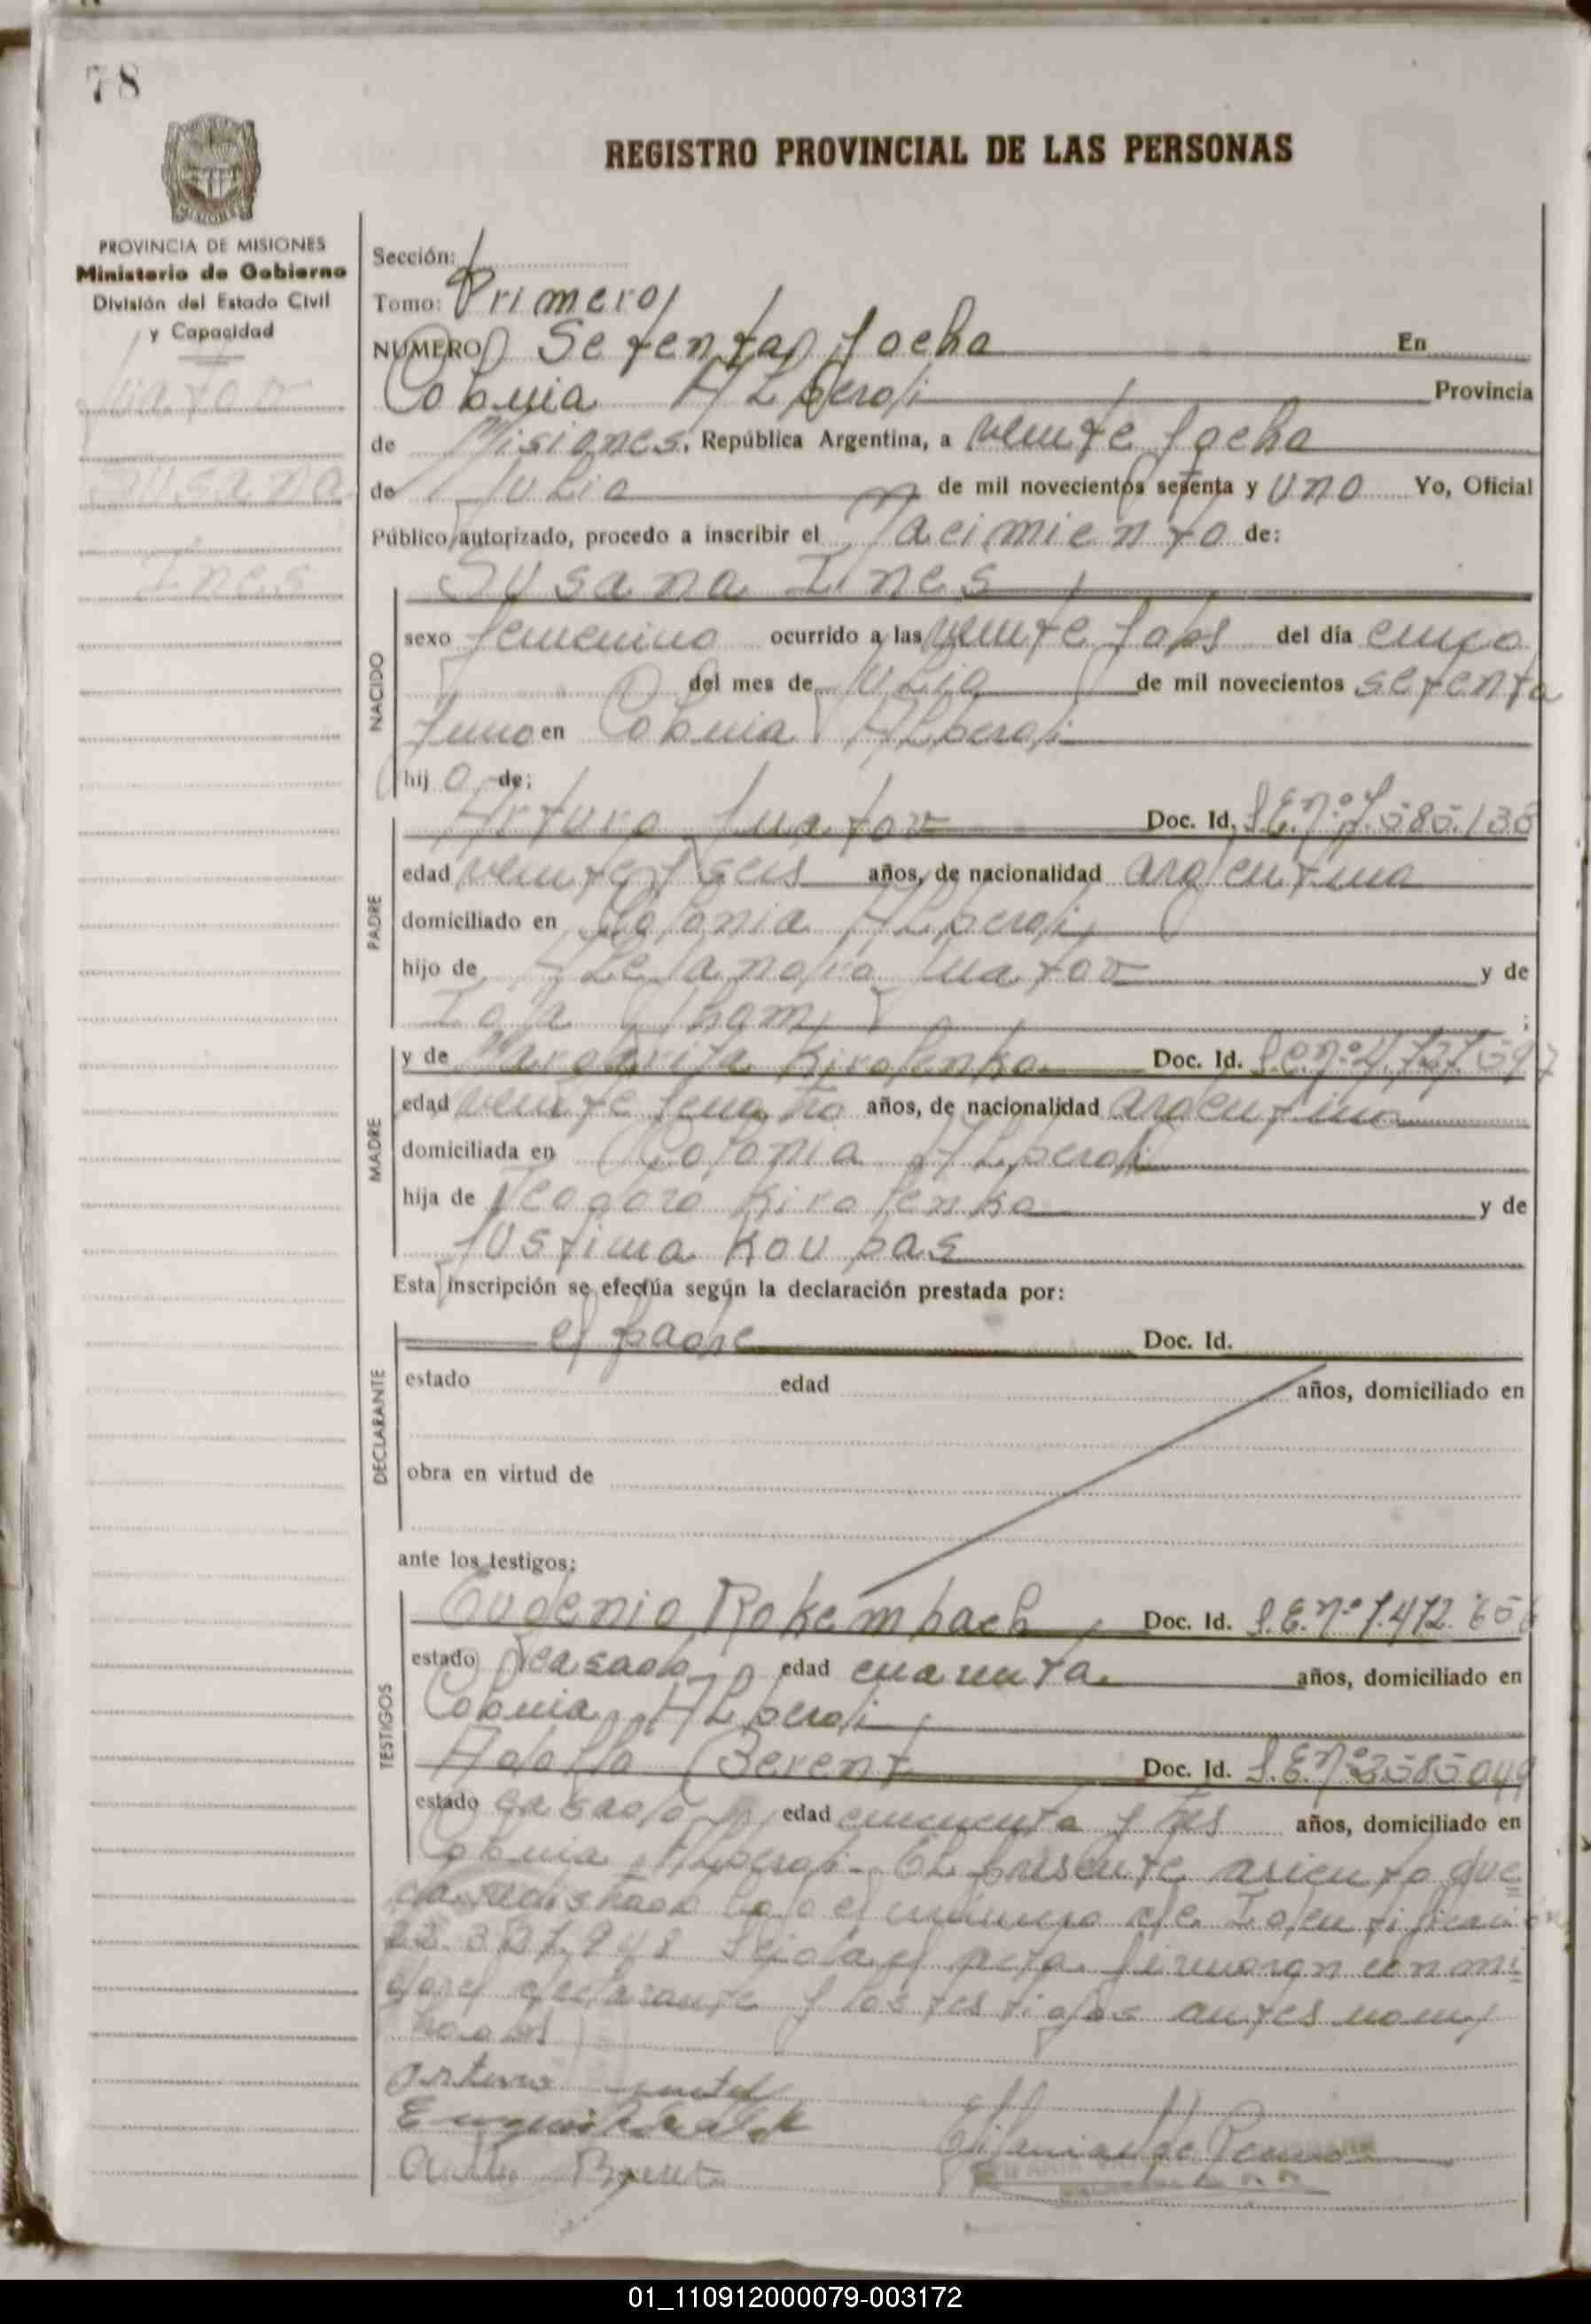 78
REGISTRO PROVINCIAL DE LAS PERSONAS
PROVINCIA DE MISIONES
Ministerio de Gobierno
División del Estado Civil
y Capacidad
Susana
Ines
Sección:
Tomo: Primero
NUMERO Setenta y ocho En
Colonia Alberdi Provincia
de Misiones, República Argentina, a veinte y ocho
de Julio de mil novecientos setenta y uno Yo, Oficial
Público autorizado, procedo a inscribir el Nacimiento de:
Susana Ines
NACIDO
sexo femenino ocurrido a las veinte y dos del día cinco
del mes de Julio de mil novecientos setenta
y uno en Colonia Alberdi
hij a de:
PADRE
Arturo Doc. Id. L.E.Nº 7.585.138
edad veinte y seis años, de nacionalidad argentina
domiciliado en Colonia Alberdi
hijo de Alejandro y de
Ida ;
MADRE
y de Margarita Kirolenko Doc. Id.
edad veinte y cuatro años, de nacionalidad argentina
domiciliada en Colonia Alberdi
hija de Teodoro Kirolenko y de
Justina
Esta inscripción se efectúa según la declaración prestada por:
DECLARANTE
el padre Doc. Id.
estado edad años, domiciliado en
obra en virtud de
ante los testigos:
TESTIGOS
Eugenio Rokembach Doc. Id. L.E.Nº 7.472.
estado casado edad cuarenta años, domiciliado en
Colonia Alberdi
Adolfo Berent Doc. Id. L.E.Nº
estado casado edad cincuenta y tres años, domiciliado en
Colonia Alberdi- El presente asiento que=
da registrado bajo el número de Identificación
Leida el acta firmaron con mi=
go el declarante y los testigos antes nom
brados
Arturo
01_110912000079-003172